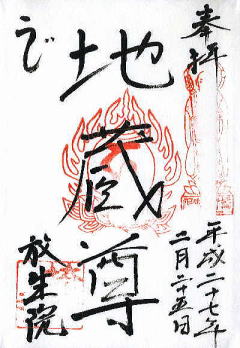 奉拝
平成二十七年
二月二十五日
地蔵尊
放生院